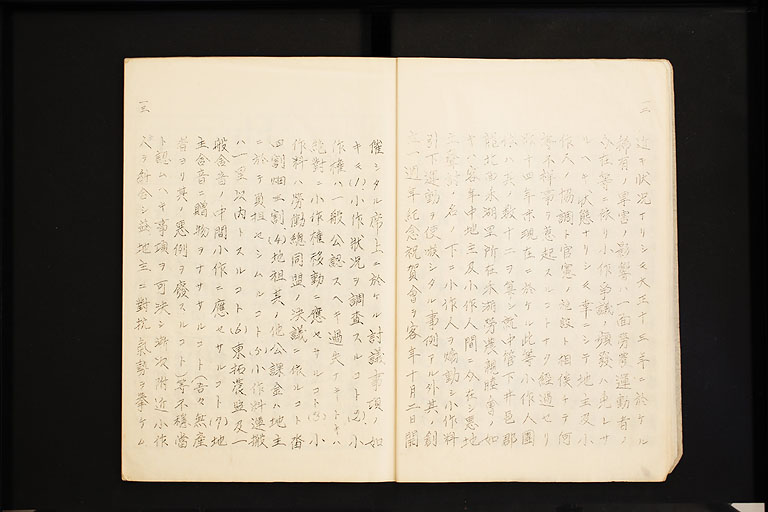 近キ状況ナリシモ大正十三年ニ於ケル
稀有ノ旱害ノ影響ハ一面労農運動者ノ
介在等ニ依リ小作争議ノ頻発ハ免レサ
ルヘキ状態ナリシモ幸ニシテ地主及小
作人ノ協調ト官憲ノ施設ト相俟チテ何
等不祥事ヲ惹起スルコトナク経過セリ
昨十四年末現在ニ於ケル此等小作人団
体ハ其ノ数十二ヲ算シ就中管下井邑郡
龍北面水湖里所在水湖労農親睦会ノ如
キハ客年中地主及小作人間ニ介在シ悪地
主膺討ノ名ノ下ニ小作人ヲ煽動シ小作料
引下運動ヲ使嗾シタル事例アル外其ノ創
立一週年紀念祝賀会ヲ客年十月二日開
一三
催シタル席上ニ於ケル討議事項ノ如
キモ(1)小作状況ヲ調査スルコト(2)小
作権ハ一般公認スヘキ過失ナキトキハ
絶対ニ小作権移動ニ應セサルコト(3)小
作料ハ労働総同盟ノ決議ニ依ルコト畓
四割畑三割(4)地租其ノ他公課金ハ地主
ニ於テ負担セシムルコト(5)小作料運搬
ハ一里以内トスルコト(6)東拓農監及一
般舎音ノ中間小作ニ應セサルコト(7)地
主舎音ニ贈物ヲナササルコト(吾々無産
者ヨリ其ノ悪例ヲ廃スルコト)等不穏当
ト認ムヘキ事項ヲ可決シ漸次附近小作
人ヲ糾合シ益地主ニ對抗気勢ヲ挙ケル
一三